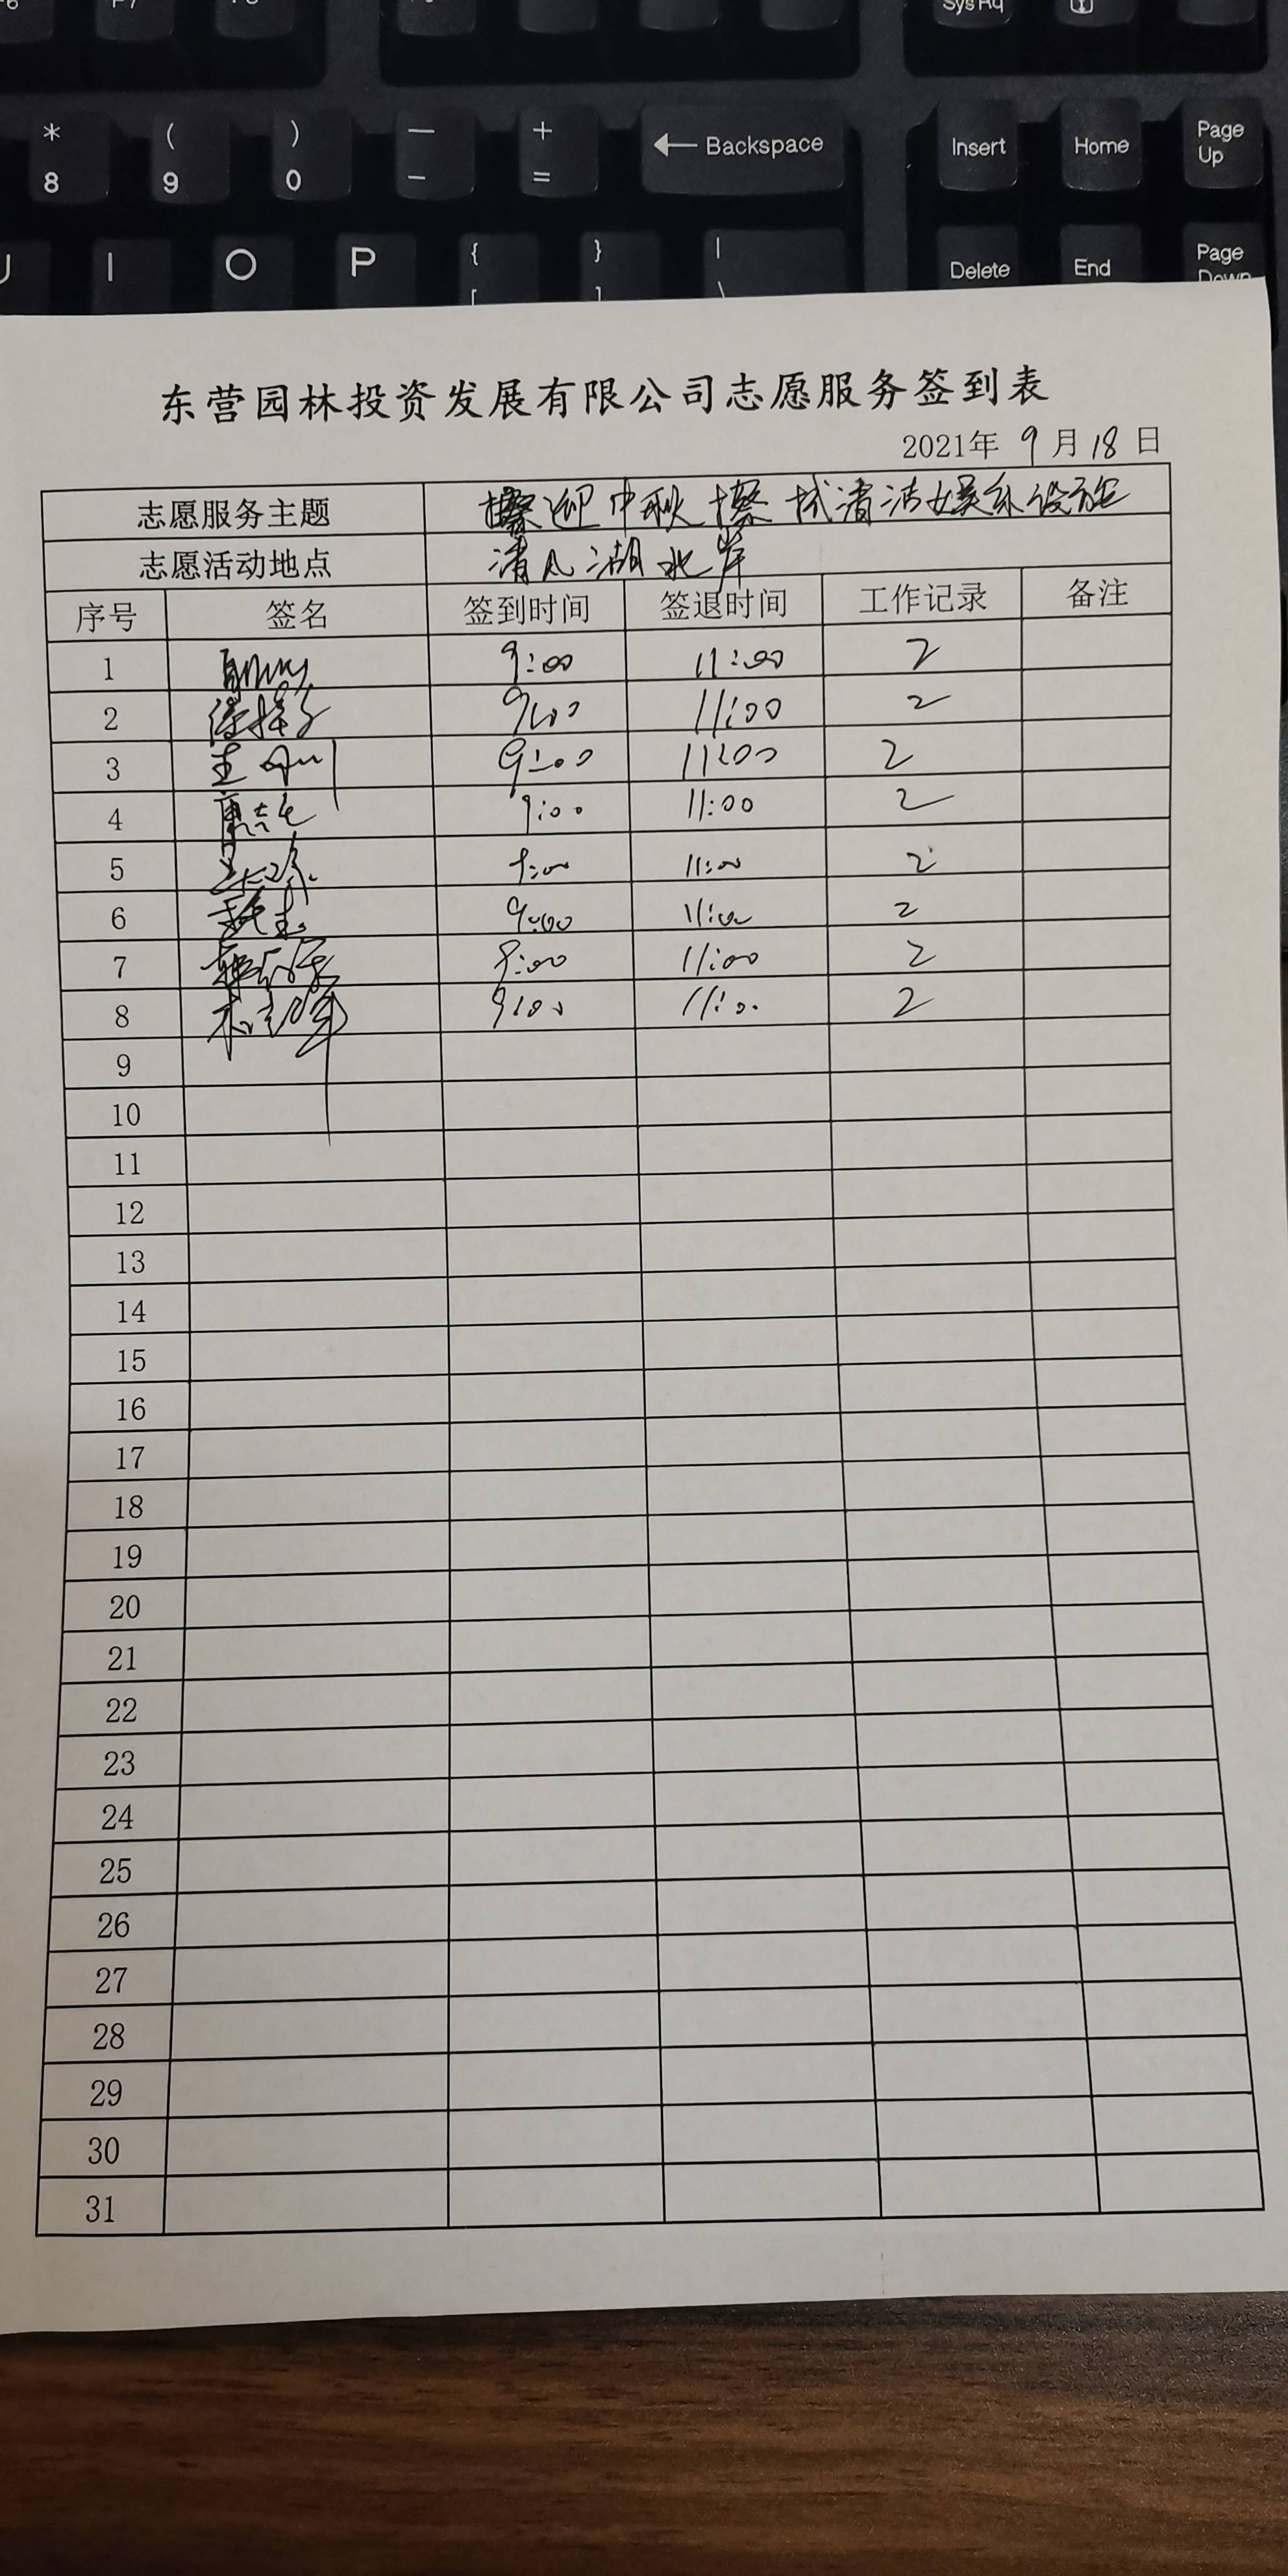 F6 F7 F8 SysRq
* ( ) — + ← Backspace Insert Home Page Up
8 9 0 - =
U I O P { } | Delete End Page Down
[ ] \
东营园林投资发展有限公司志愿服务签到表
2021年 9月18日
志愿服务主题 迎中秋擦拭清洁娱乐设施
志愿活动地点 清风湖北岸
序号 签名 签到时间 签退时间 工作记录 备注
1 9:00 11:00 2
2 9:00 11:00 2
3 9:00 11:00 2
4 9:00 11:00 2
5 9:00 11:00 2
6 9:00 11:00 2
7 9:00 11:00 2
8 9:00 11:00 2
9
10
11
12
13
14
15
16
17
18
19
20
21
22
23
24
25
26
27
28
29
30
31